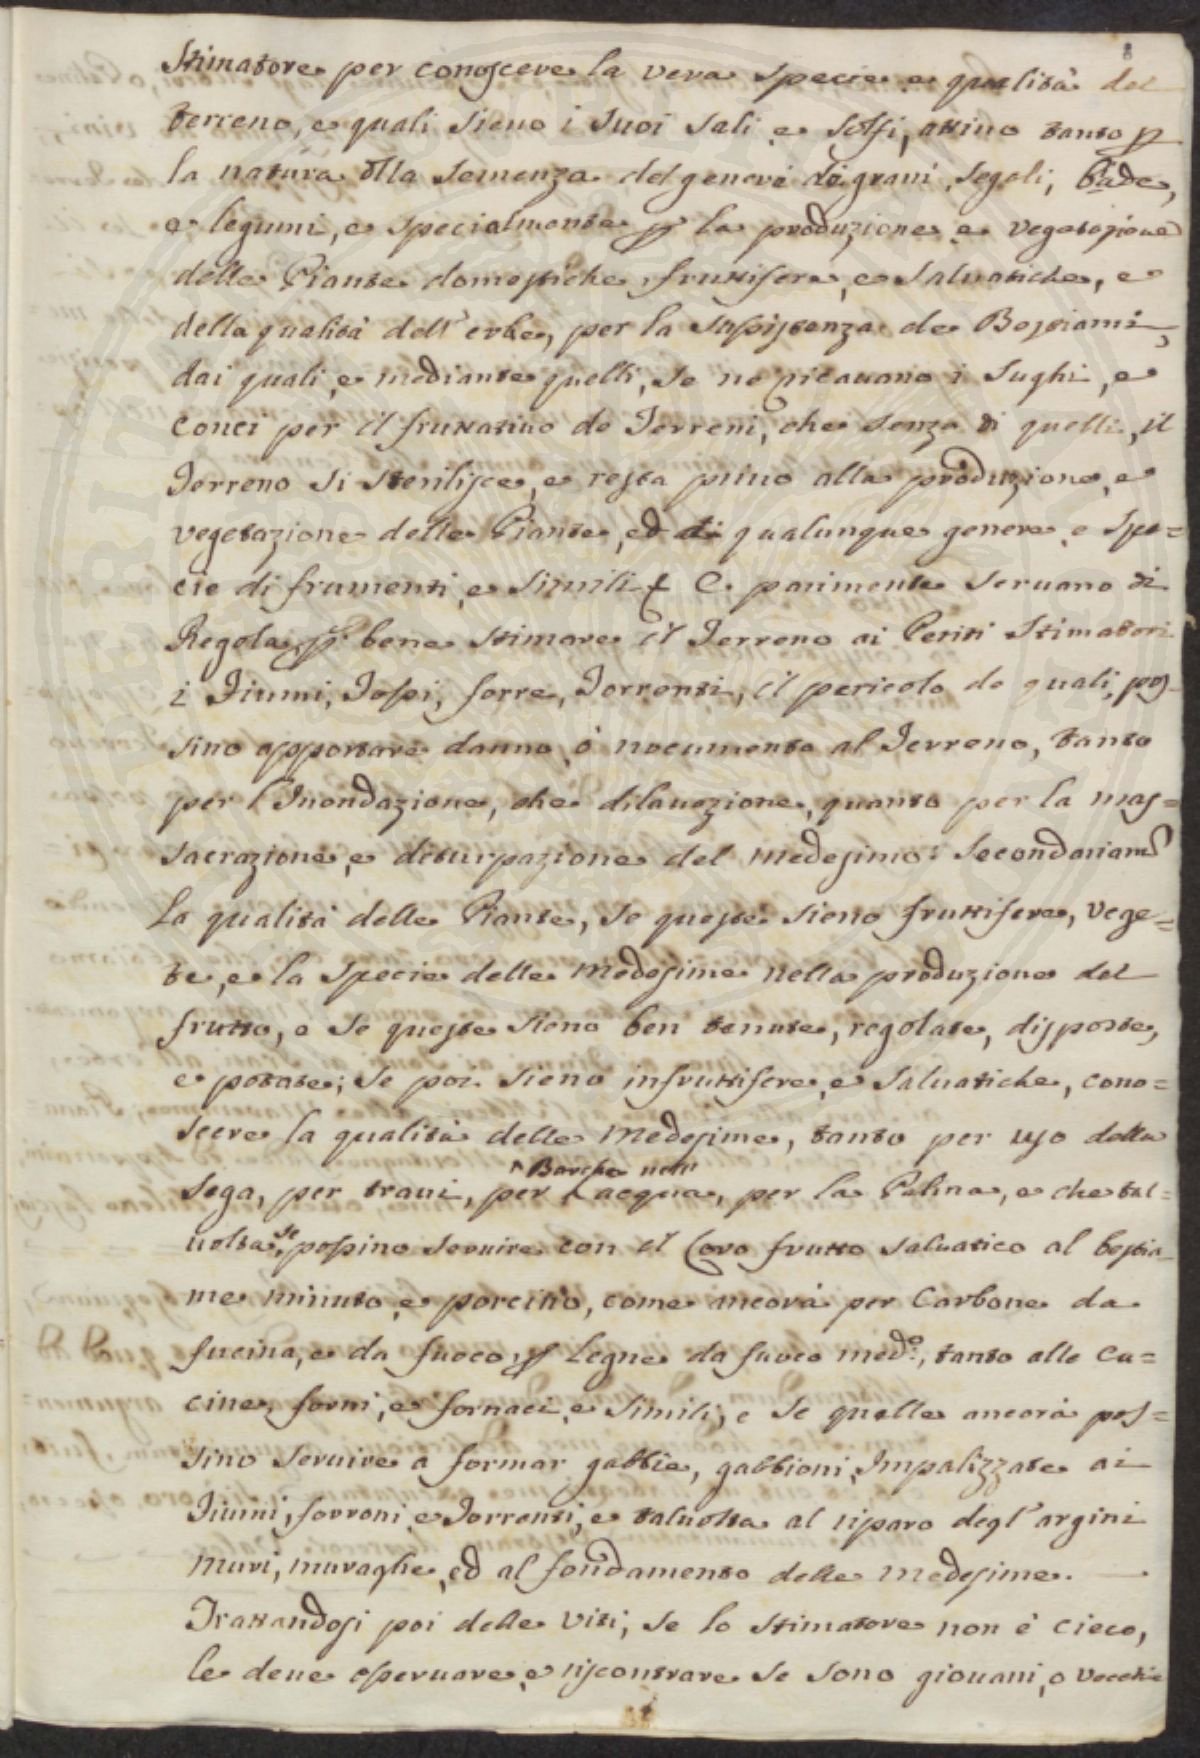 8
Stimatore per conoscere la vera specie e qualità del
terreno, e quali sieno i suoi sali e solfi, attivo tanto p
la natura alla semenza del genere di grani, segali, biade,
e legumi, e specialmente p la produzione e vegetazione
delle Piante domestiche, fruttifere, e salvatiche, e
della qualità dell'erbe, per la sussistenza de Bestiami,
dai quali, e mediante quelli, se ne ricavano i sughi, e
conci per il fruttativo de Terreni, che senza di quelli, il
Terreno si sterilisce, e resta privo alla produzione, e
vegetazione delle Piante, ed di qualunque genere e spe=
cie di frumenti, e simili E parimente servano di
Regola p bene stimare il Terreno ai Periti Stimatori
i Fiumi, Fossi, forre, Torrenti, il pericolo de quali, pos-
sino apportare danno, ò nocumento al Terreno, tanto
per l'Inondazione, che dilavazione, quanto per la mas=
sacrazione, e diturpazione del medesimo: Secondariam
La qualità delle Piante, se queste sieno fruttifere, vege=
te, e la specie delle medesime nella produzione del
frutto, e se queste sieno ben tenute, regolate, disposte,
e potate; se poi sieno infruttifere, e salvatiche, cono=
scere la qualità delle medesime, tanto per uso della
Barche nell'
sega, per travi, per acqua, per la Palina, e che tal=
volta, se possino servire con il Loro frutto salvatico al bestia=
me minuto, e porcino, come ancora per Carbone da
fucina, e da fuoco, p Legne da fuoco med.o, tanto alle Cu=
cine, forni, e fornaci, e simili, e se quelle ancora pos=
sino servire a formar gabbie, gabbioni, Impalizzate ai
Fiumi, forroni, e Torrenti, e talvolta al riparo degl'argini
Muri, muraglie, ed al fondamento delle medesime.
Trattandosi poi delle viti, se lo stimatore non è cieco,
le deve osservare, e riscontrare se sono giovani, o vecchie